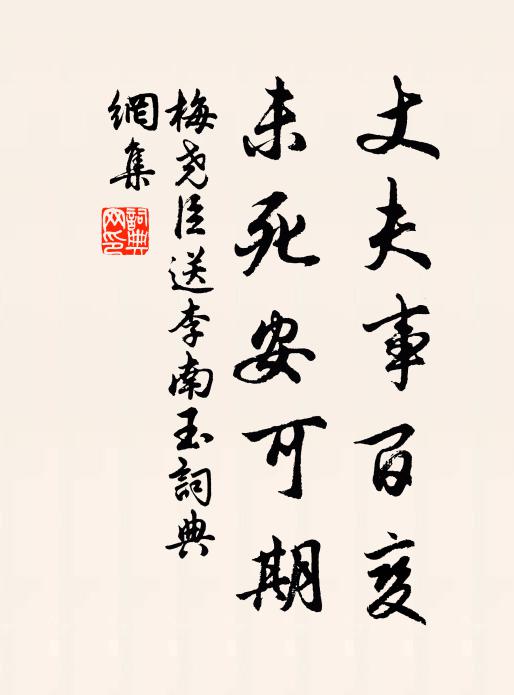 丈夫事百变
未死安可期
梅尧臣送李南玉詞典
網集
詞典网印